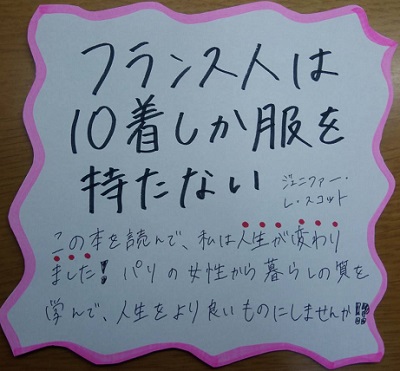 フランス人は
10着しか服を
持たない
ジェニファー・
L・スコット
この本を読んで、私は人生が変わり
ました! パリの女性から暮らしの質を
学んで、人生をより良いものにしませんか!!